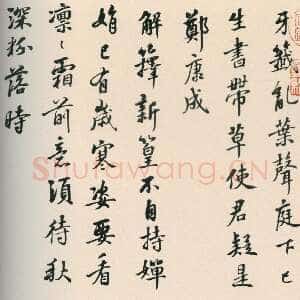 牙籤亂葉聲庭下已
生書帶草使君疑是
鄭康成
解籜新篁不自持嬋
娟已有歲寒姿要看
凜〻霜前意須待秋
深粉落時
Shufawang.CN